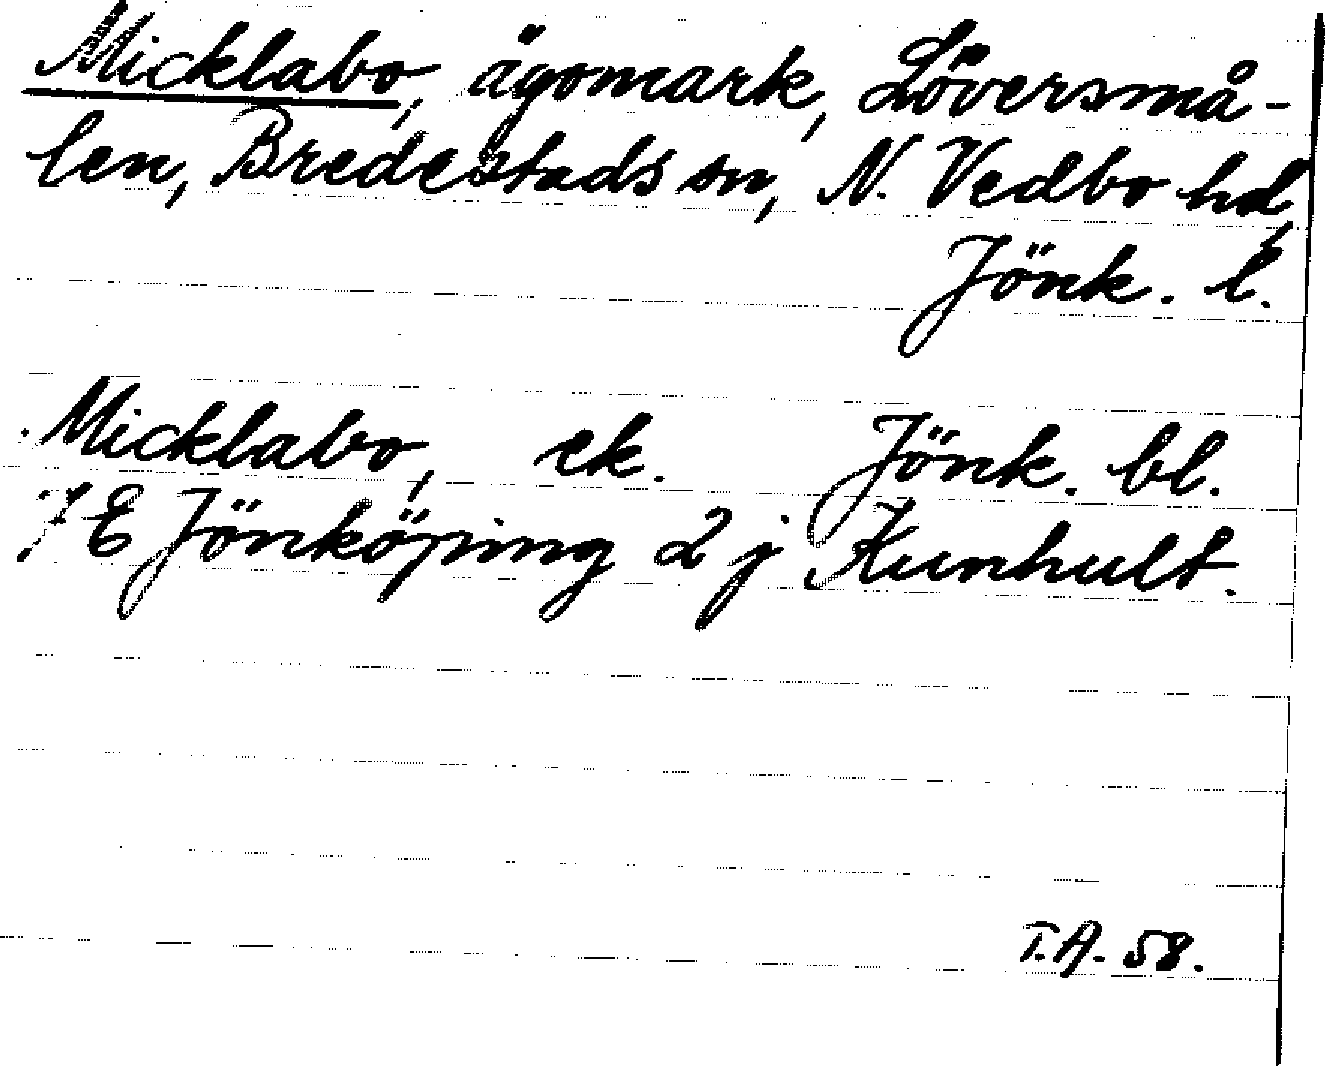 Micklabo, ägomark, Löversmå-
len, Bredestads sn, N. Vedbo hd,
Jönk. l.
Micklabo, ek. Jönk. bl.
7 E Jönköping 2 j Kunhult.
T.A. 58.